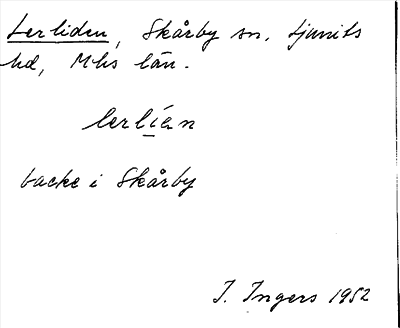 Lerliden, Skårby sn, Ljunits
hd, Mhs län.
lerlíen
backe i Skårby
I. Ingers 1952